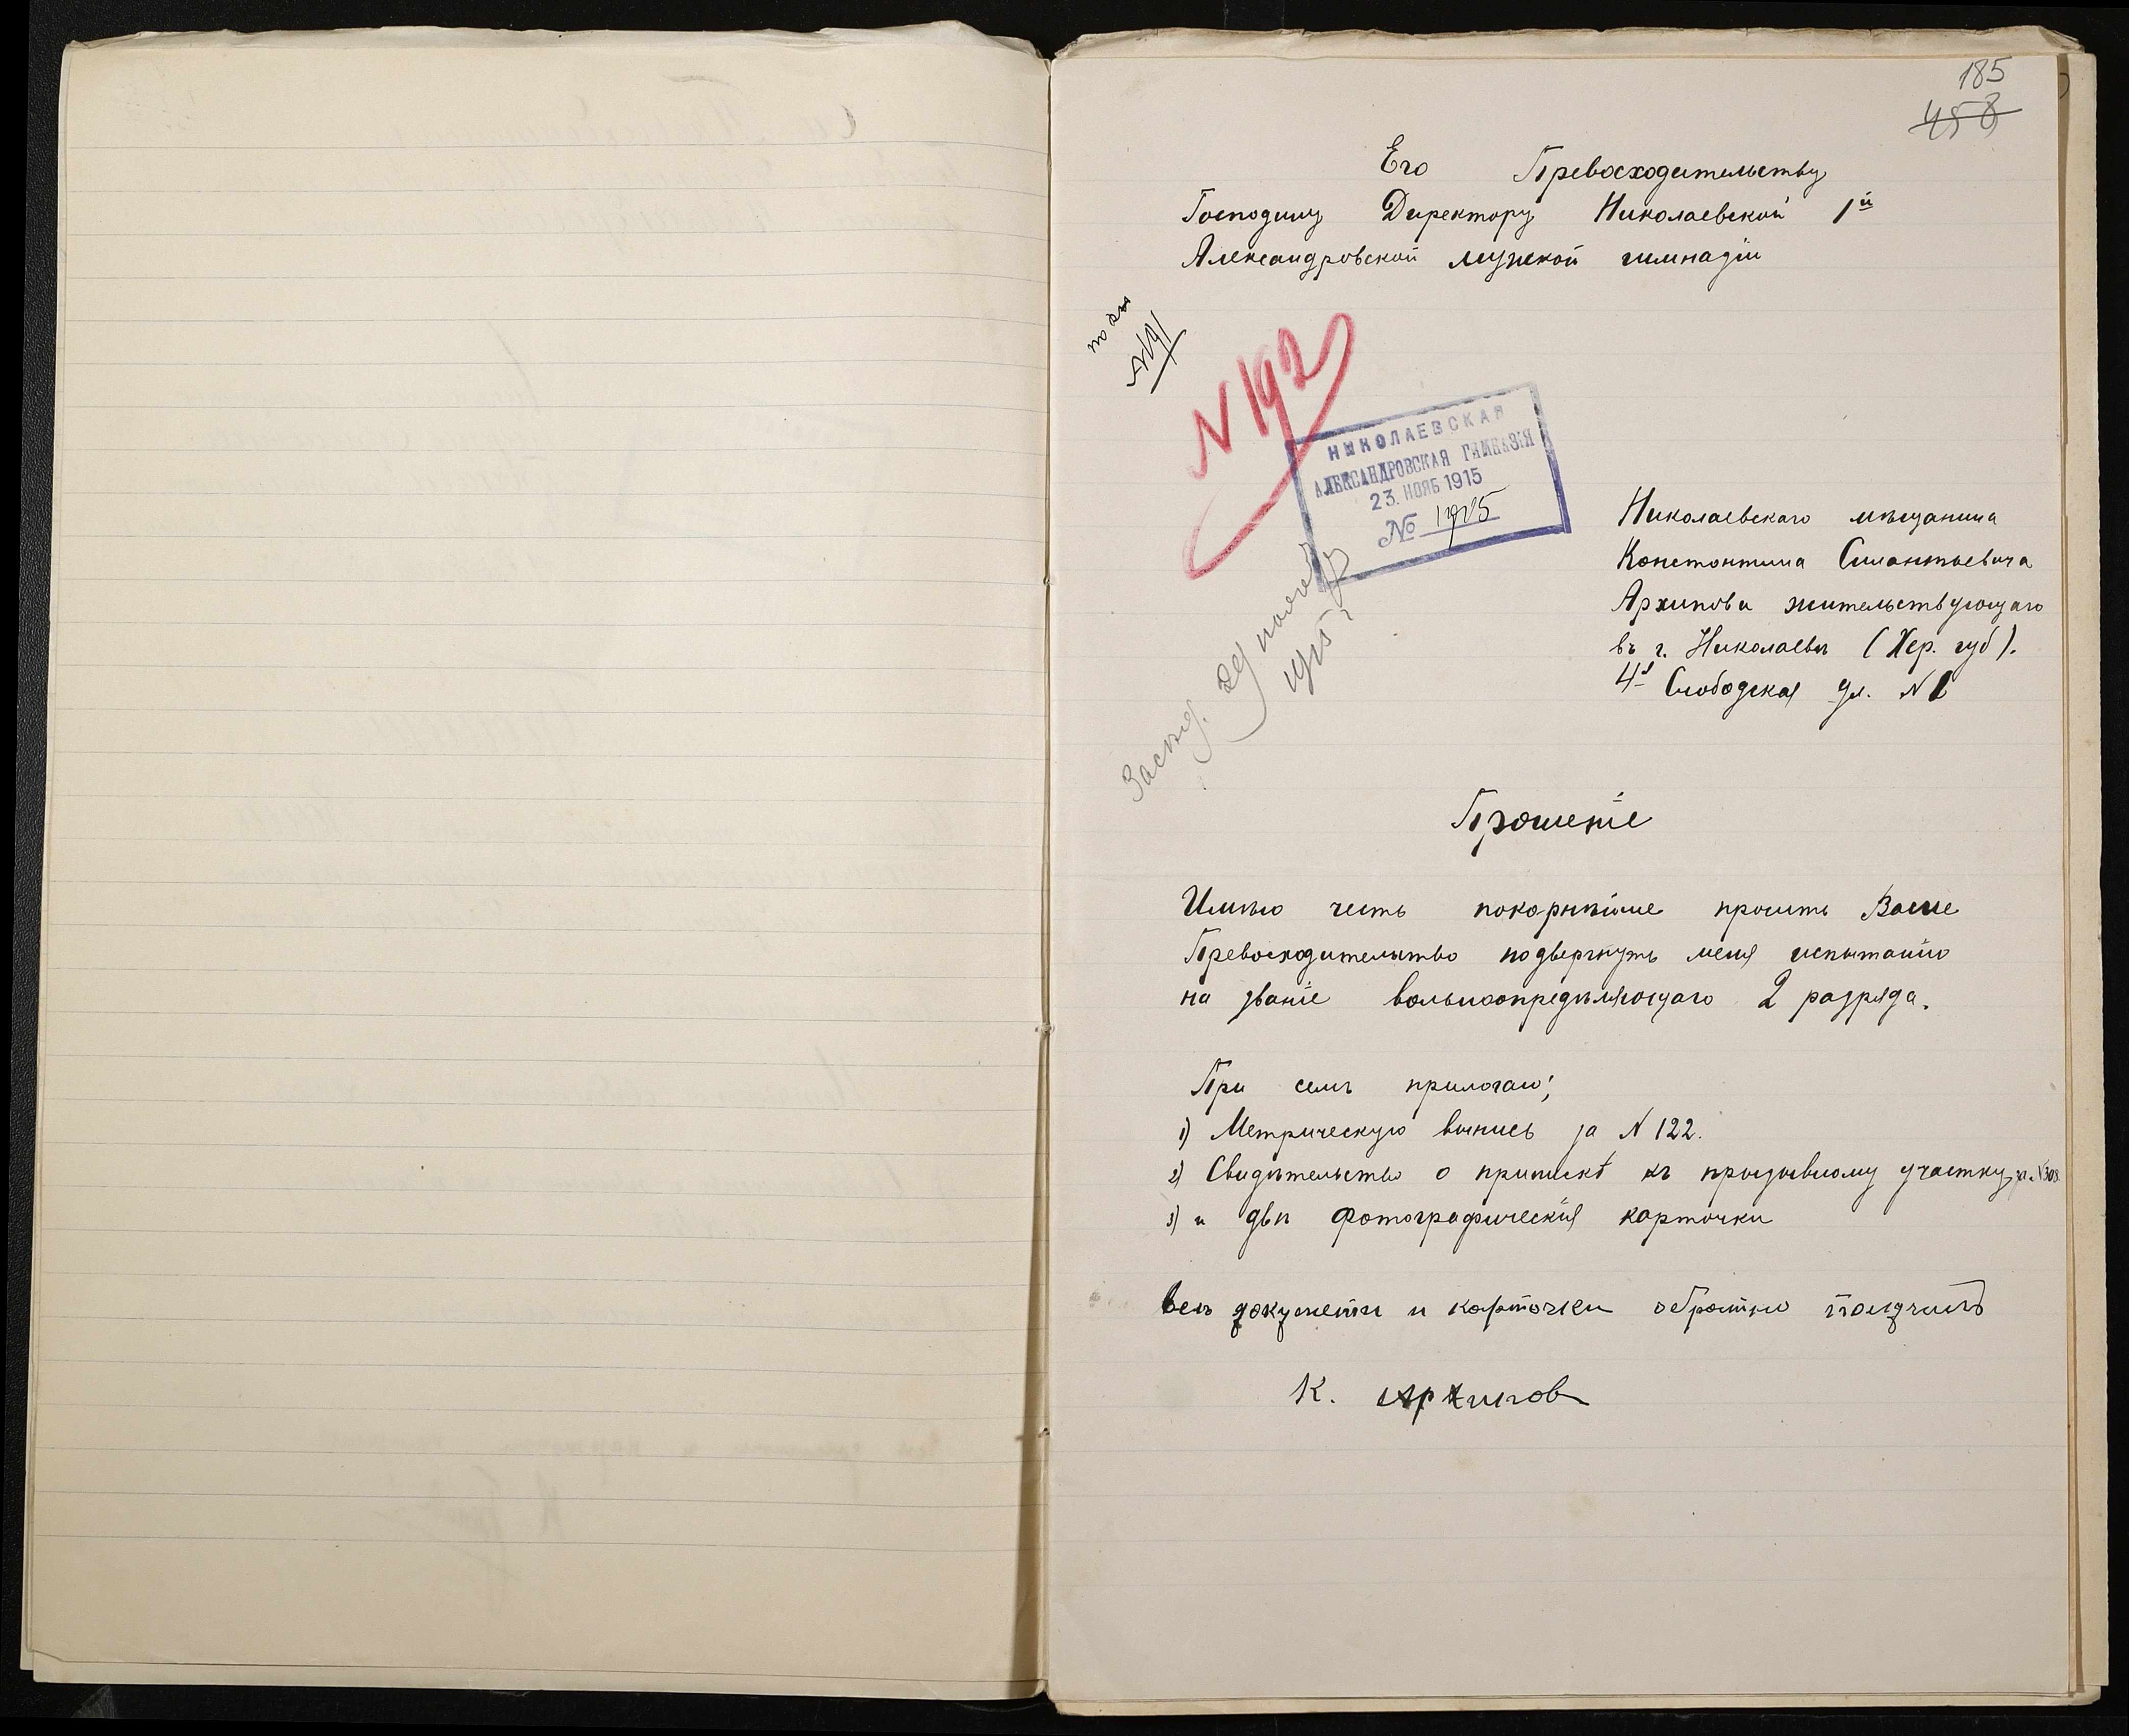 185
458
Его Превосходительству
Господину Директору Николаевской 1й
Александровской мужской гимназіи
N 192
НИКОЛАЕВСКАЯ
АЛЕКСАНДРОВСКАЯ ГИМНАЗІЯ
23. НОЯБ 1915
№
Николаевскаго мѣщанина
Константина Силантьевича
Архипова жительствующаго
въ г. Николаевѣ (Хер. губ).
4я Слободская ул. N 1
Засѣд. 29 ноября
1915 г
Прошеніе
Имѣю честь покорнѣйше просить Ваше
Превосходительство подвергнуть меня испытанію
на званіе вольноопредѣляющаго 2 разряда.
При семъ прилогаю;
1) Метрическую выпись за N 122.
2) Свидѣтельство о припискѣ къ призывному участку, за N 308
3) и двѣ фотографическія карточки
всѣ документы и карточки обратно получилъ
К. Архипов